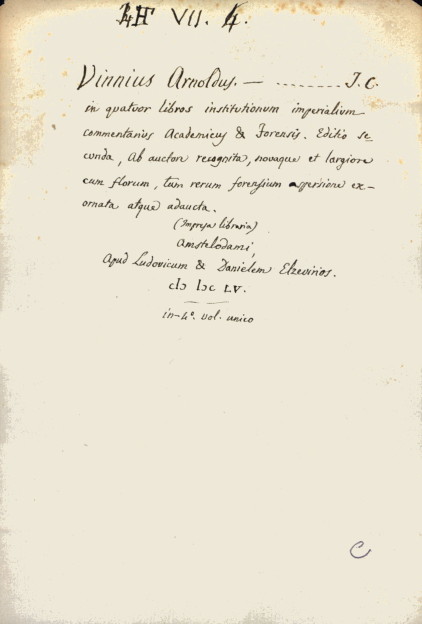 VII. 4.
Vinnius Arnoldus. — - - - - - - - - J. C.
in quatuor libros institutionum imperialium
commentarius, Academicus & Forensis. Editio se
cunda, ab auctore recognita, novaque et largiore
cum florum, tum rerum forensium aspersione ex-
ornata atque adaucta.
(Impresa libraria)
Amstelodami,
Apud Ludovicum & Danielem Elzevirios.
cIɔ Iɔc LV.
in-4º. vol. unico
C